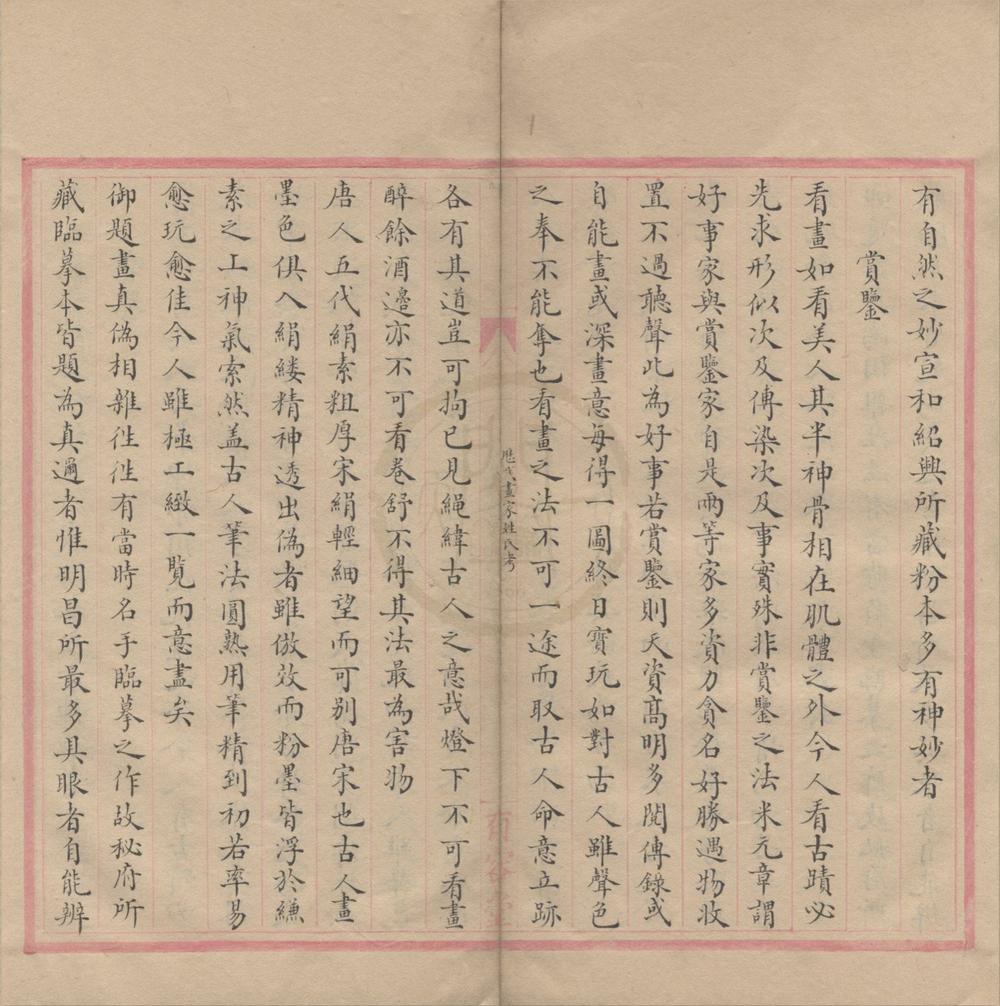 有自然之妙宣和紹興所藏粉本多有神妙者
賞鑒
看畫如看美人其丰神骨相在肌體之外今人看古蹟必
先求形似次及傅染次及事實殊非賞鑒之法米元章謂
好事家與賞鑒家自是兩等家多資力貪名好勝遇物收
置不過聽聲此為好事若賞鑒則天資高明多閱傳錄或
自能畫或深畫意每得一圖終日寶玩如對古人雖聲色
之奉不能奪也看畫之法不可一途而取古人命意立跡
歷代畫家姓氏考
各有其道豈可拘已見繩緯古人之意哉燈下不可看畫
醉餘酒邊亦不可看卷舒不得其法最為害物
唐人五代絹素粗厚宋絹輕細望而可别唐宋也古人畫
墨色俱入絹縷精神透出偽者雖倣效而粉墨皆浮於縑
素之上神氣索然盖古人筆法圓熟用筆精到初若率易
愈玩愈佳今人雖極工緻一覧而意盡矣
御題畫真偽相雜徃徃有當時名手臨摹之作故秘府所
藏臨摹本皆題為真邇者惟明昌所最多具眼者自能辨